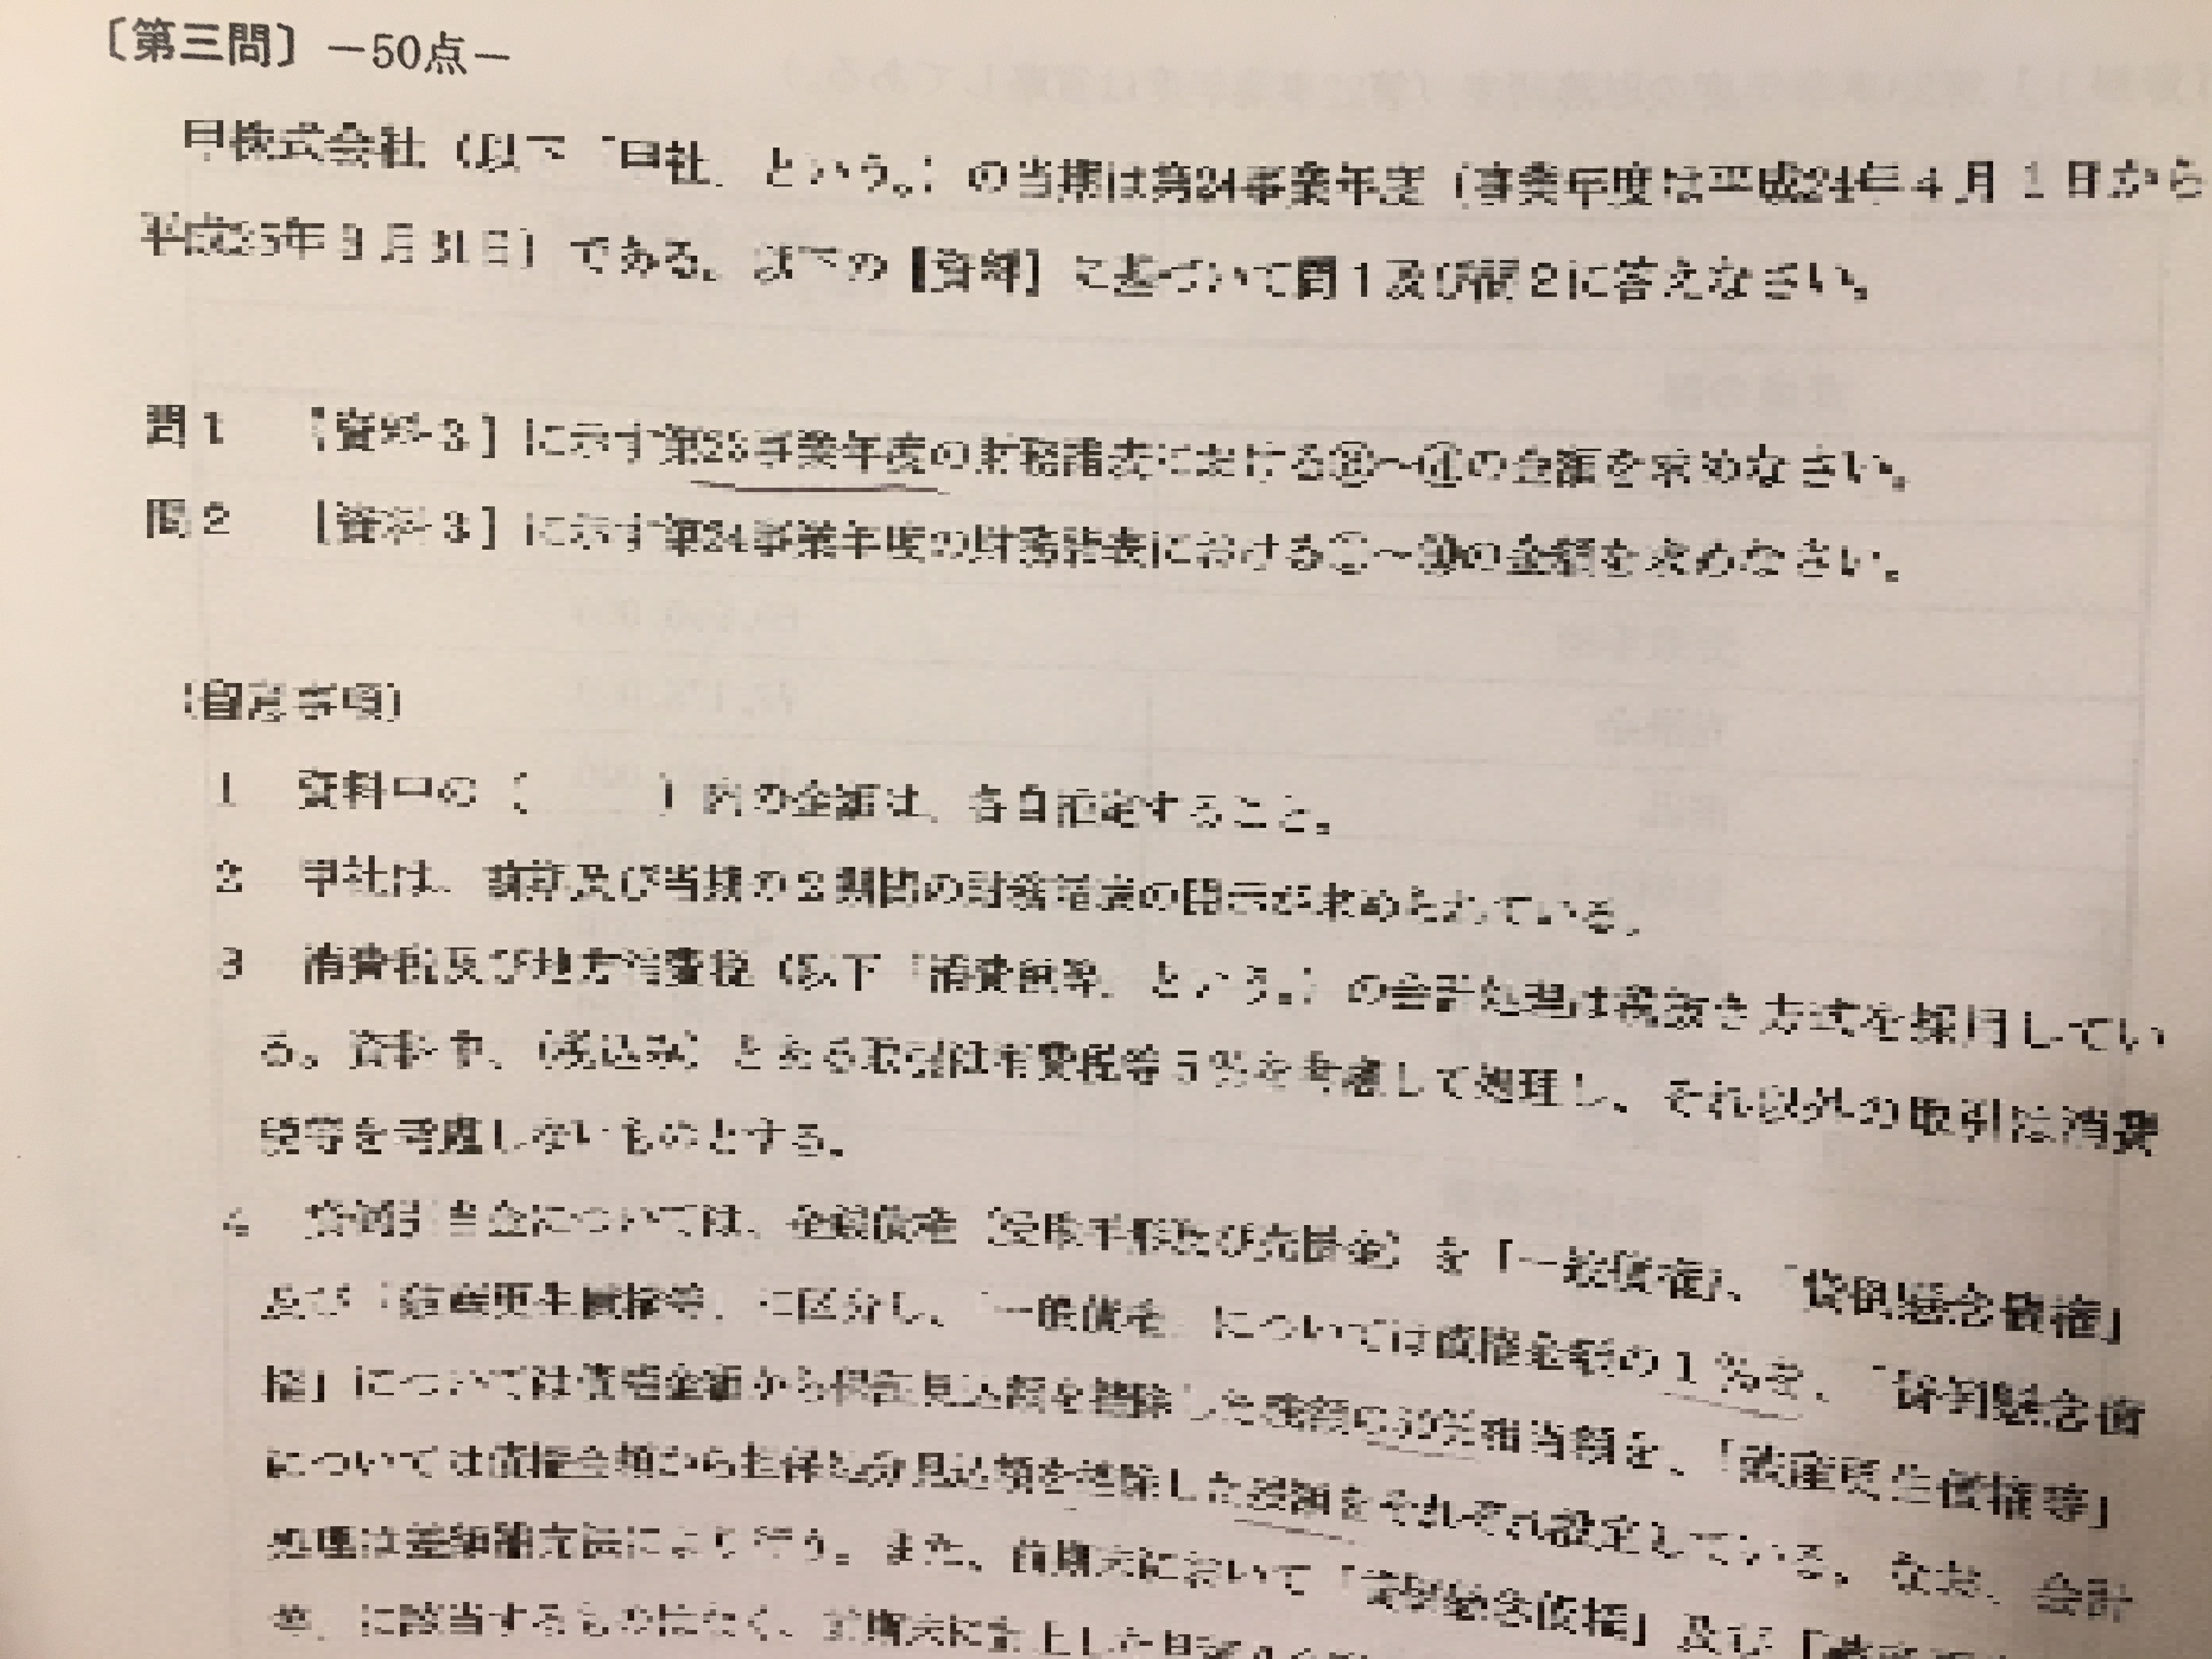 〔第三問〕－50点－
甲株式会社（以下「甲社」という。）の当期は第24事業年度（事業年度は平成24年4月1日から
平成25年3月31日）である。以下の【資料】に基づいて問1及び問2に答えなさい。
問1 【資料3】に示す第23事業年度の財務諸表における㋐～㋓の金額を求めなさい。
問2 【資料3】に示す第24事業年度の財務諸表における①～の金額を求めなさい。
（留意事項）
1 資料中の（ ）内の金額は、各自推定すること。
2 甲社は、前期及び当期の2期間の財務諸表の開示が求められている。
3 消費税及び地方消費税（以下「消費税等」という。）の会計処理は税抜き方式を採用してい
る。資料中、（税込み）とある取引は消費税等5％を考慮して処理し、それ以外の取引は消費
税等を考慮しないものとする。
4 貸倒引当金については、金銭債権（受取手形及び売掛金）を「一般債権」、「貸倒懸念債権」
及び「破産更生債権等」に区分し、「一般債権」については債権金額の1％を、「貸倒懸念債
権」については債権金額から保証見込額を控除した残額の50％相当額を、「破産更生債権等」
については債権金額から担保処分見込額を控除した残額をそれぞれ設定している。なお、会計
処理は差額補充法により行う。また、前期末において「貸倒懸念債権」及び「破産
等」に該当するものはなく、前期末に計上した